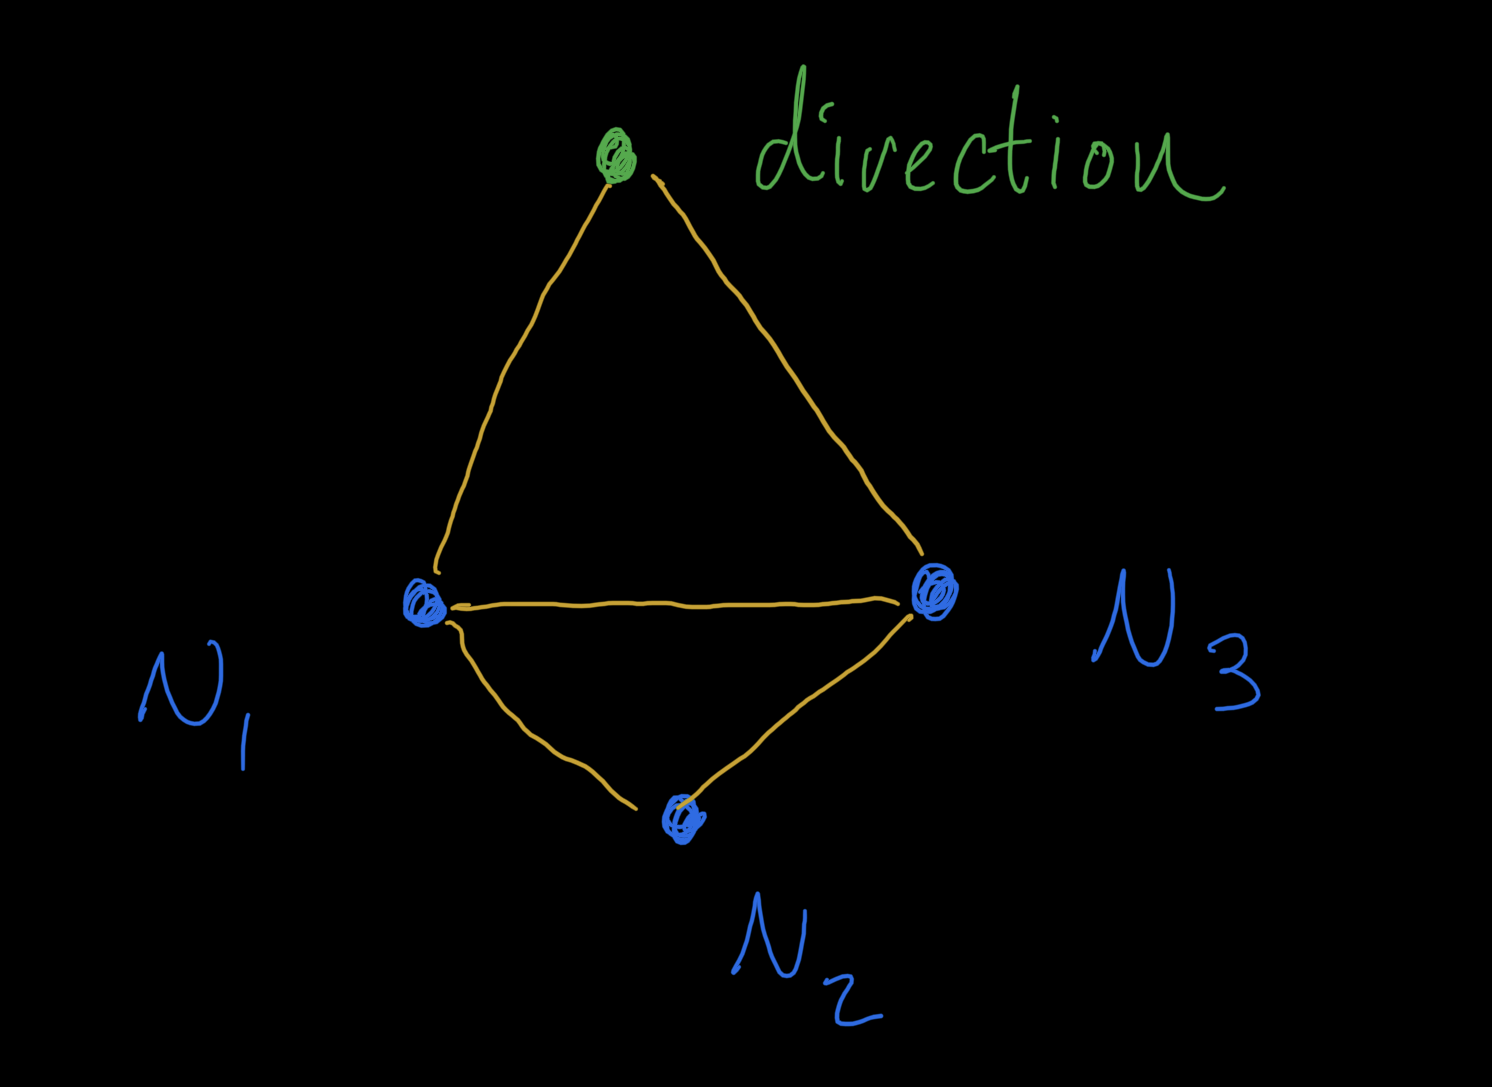 direction
N₁
N₃
N₂